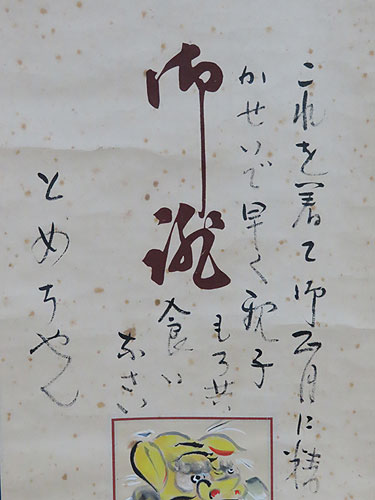 これを着て御正月に精
かせいで早く親子
もろ共
御誂
食い
なさい
とめちゃん